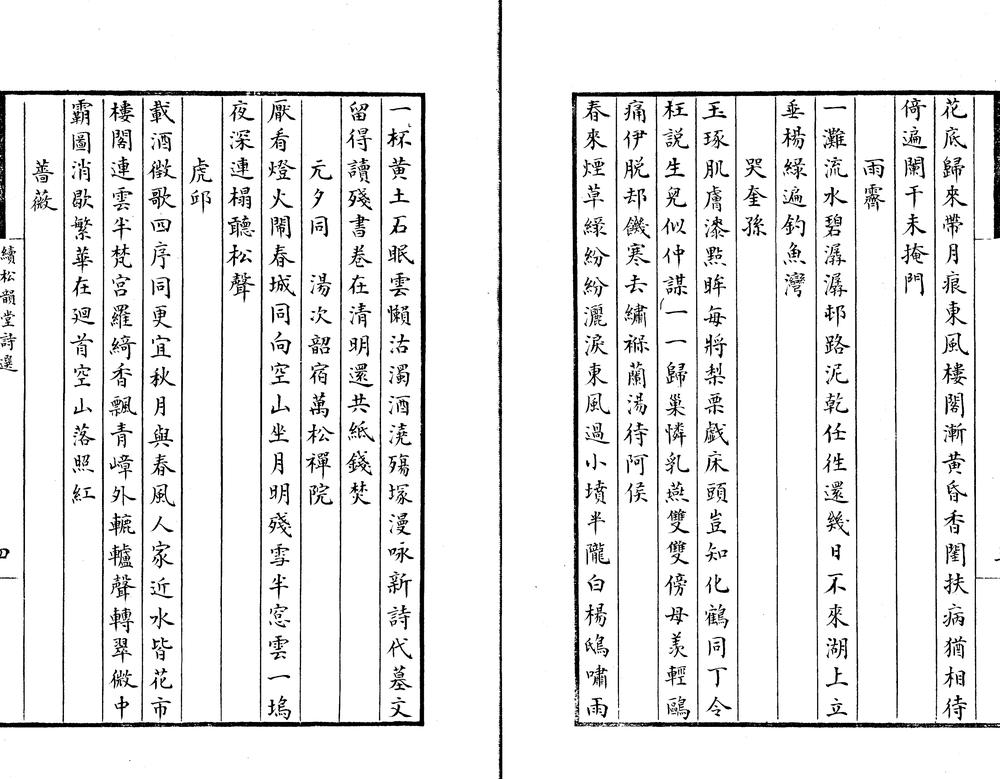 花底歸來帶月痕東風樓閣漸黃昏香閨扶病猶相待
倚遍闌干未掩門
雨霽
一灘流水碧潺潺邨路泥乾任徃還幾日不來湖上立
垂楊綠遍釣魚灣
哭奎孫
玉琢肌膚漆點眸每將梨栗戲床頭豈知化鶴同丁令
枉說生兒似仲謀一一歸巢憐乳燕雙雙傍母羨輕鷗
痛伊脫却饑寒去繡褓蘭湯待阿侯
春來煙草綠紛紛灑淚東風過小墳半隴白楊鴟嘯雨
一抔黃土石眠雲懶沽濁酒澆殤塚漫咏新詩代墓文
留得讀殘書卷在清明還共紙錢焚
元夕同 湯次韶宿萬松禪院
厭看燈火鬧春城同向空山坐月明殘雪半窓雲一塢
夜深連榻聽松聲
虎邱
載酒徵歌四序同更宜秋月與春風人家近水皆花市
樓閣連雲半梵宮羅綺香飄青嶂外轆轤聲轉翠微中
霸圖消歇繁華在廻首空山落照紅
薔薇
續松韻堂詩選
四